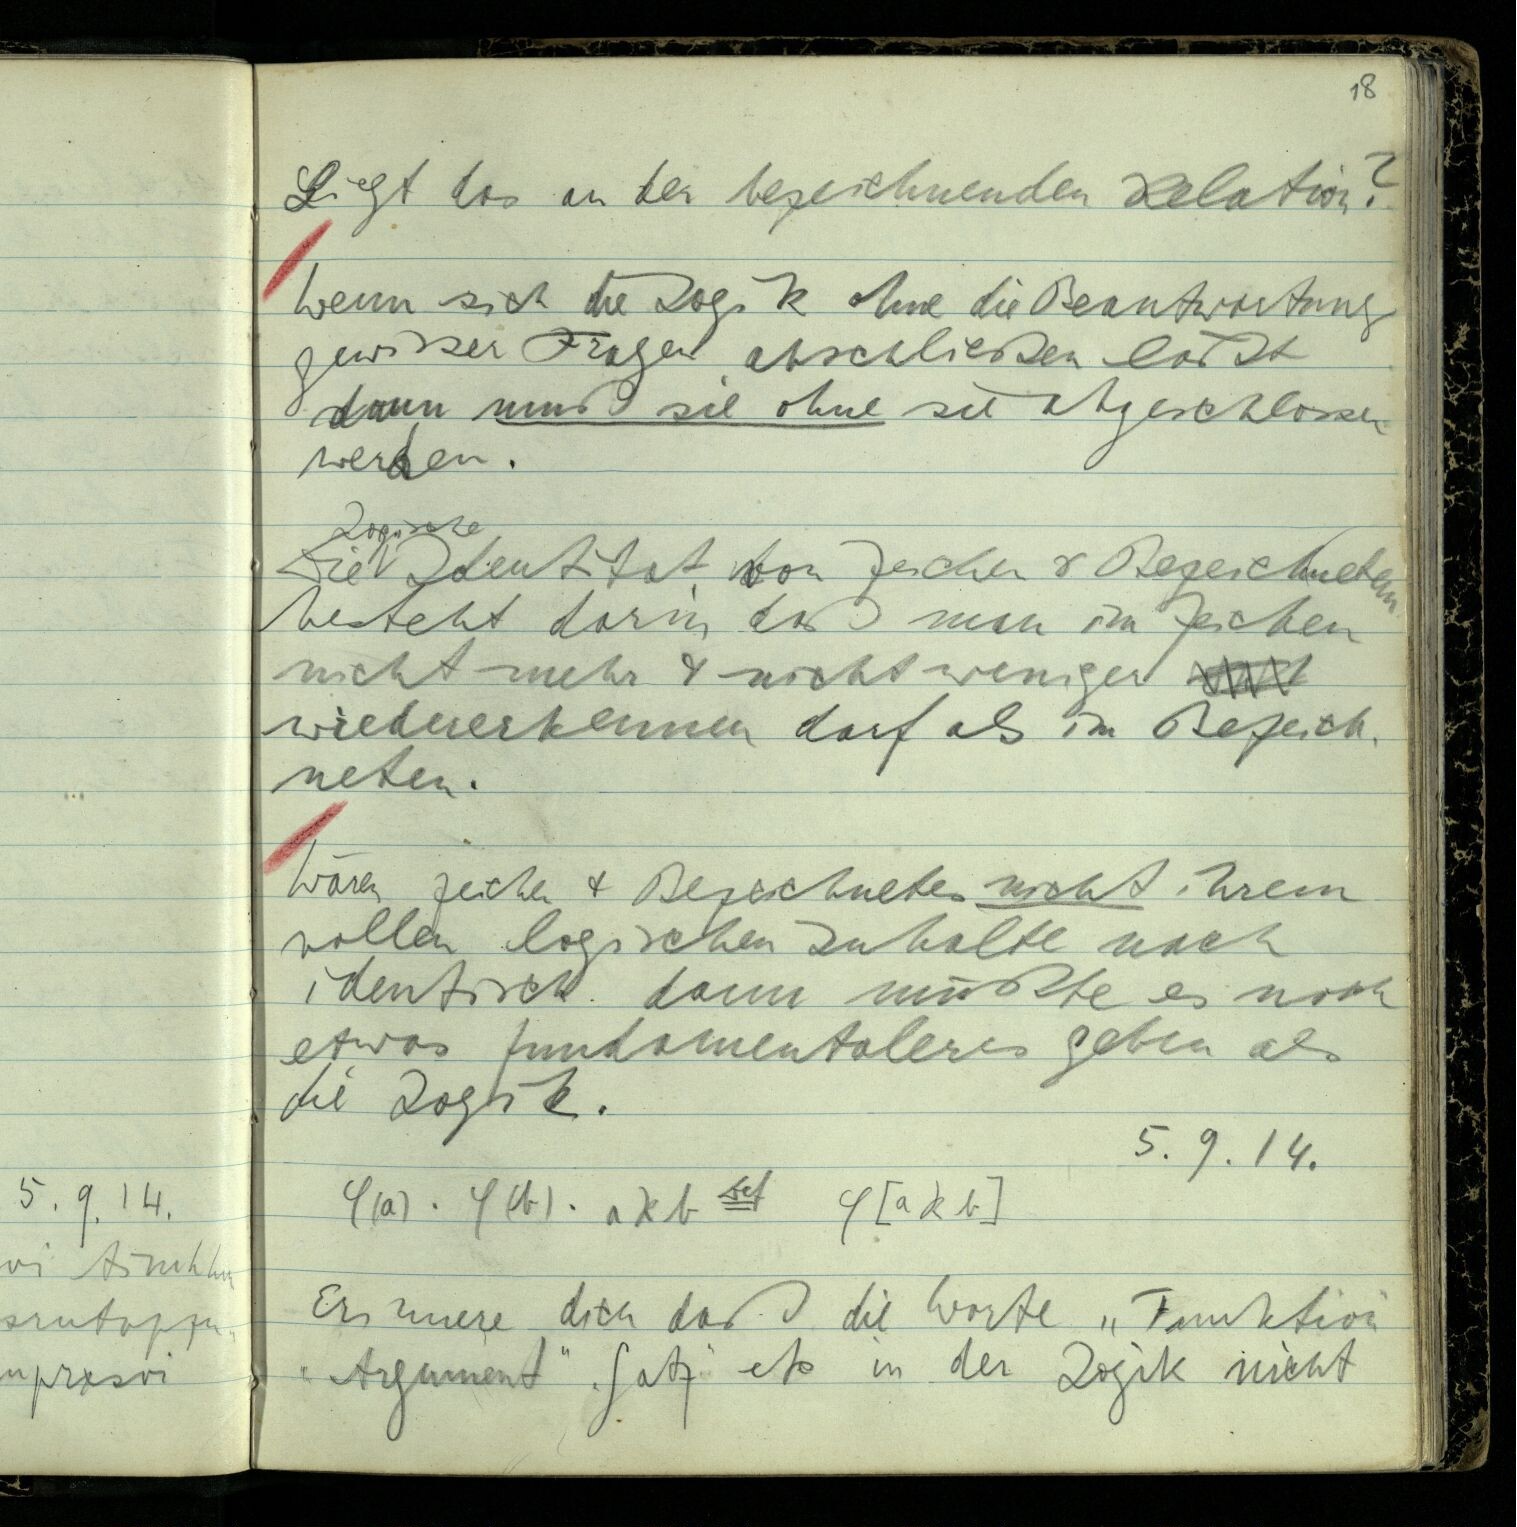 18
Liegt das an der bezeichnenden Relation?
Wenn sich die Logik ohne die Beantwortung
gewisser Fragen abschließen läßt
dann muß sie ohne sie abgeschlossen
werden.
Logische
Die Identität von Zeichen & Bezeichneten
besteht darin daß man im Zeichen
nicht mehr & nicht weniger
wiedererkennen darf als im Bezeich-
neten.
Wären Zeichen & Bezeichnetes nicht ihrem
vollen logischen Inhalte nach
identisch dann müßte es noch
etwas fundamentaleres geben als
die Logik.
5. 9. 14.
φ(a) . φ(b) . aRb Def φ[aRb]
Erinnere dich daß die Worte „Funktion
„Argument" „Satz" etc in der Logik nicht
5. 9. 14.